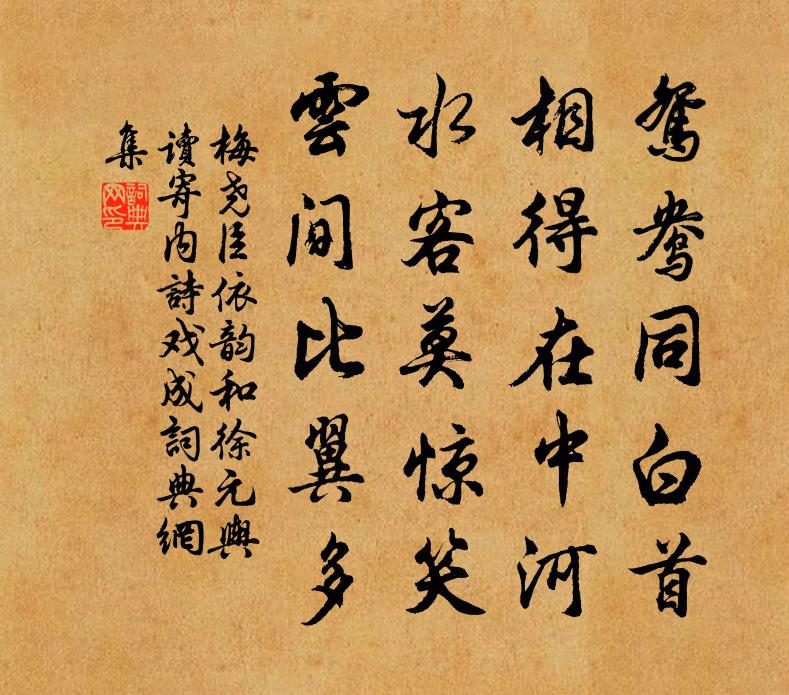 鴛鴦同白首
相得在中河
水客莫惊笑
雲间比翼多
梅尧臣依韵和徐元輿
讀寄内詩戏成詞典網
集
詞典
网印